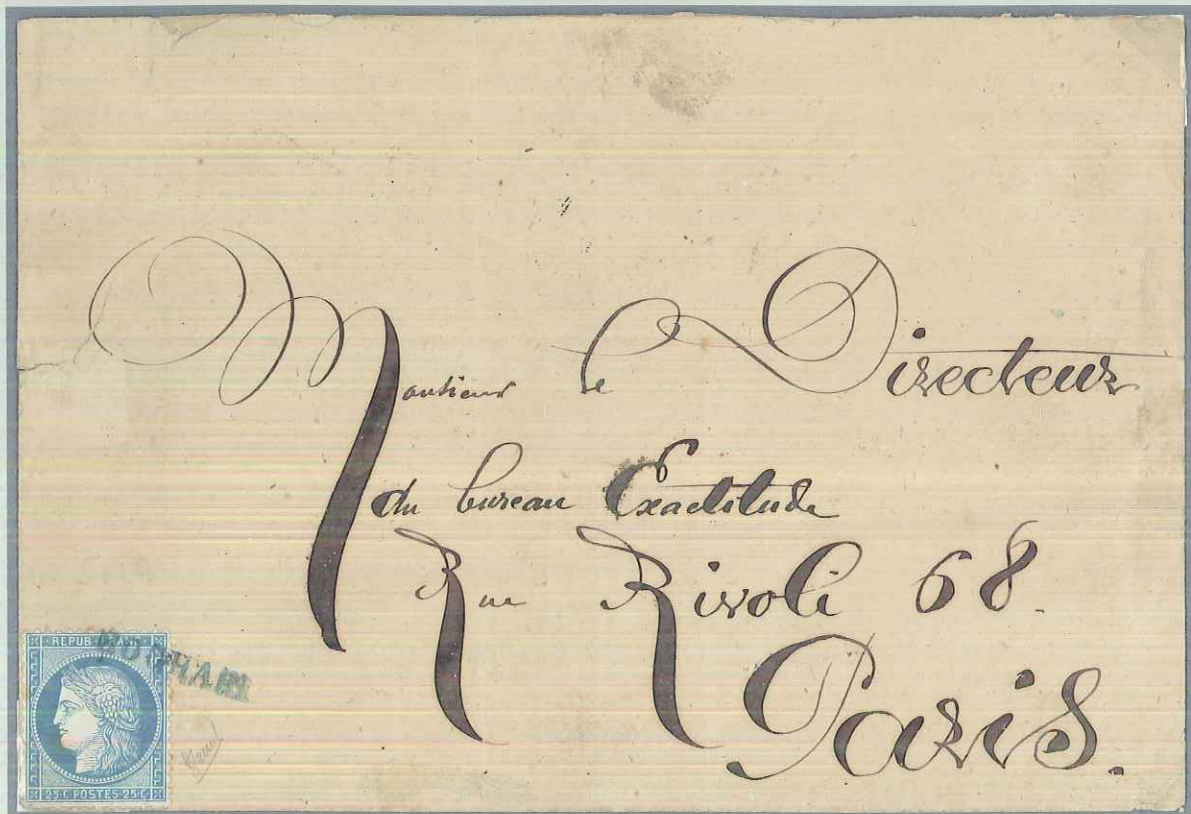 Monsieur le Directeur
du bureau Exactitude
Rue Rivoli 68.
Paris.
REPUB
25 C POSTES 25 C